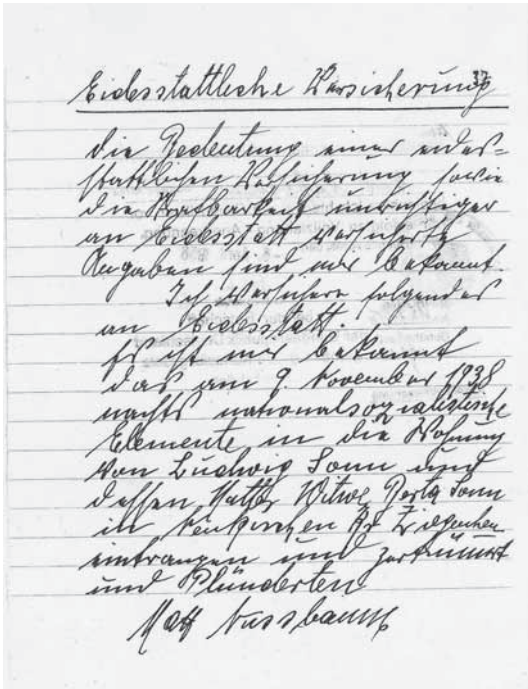 37
Eidesstattliche Versicherung
die Bedeutung einer eides=
stattlichen Versicherung sowie
die Strafbarkeit unrichtiger
an Eidesstatt versicherte
Angaben sind mir bekannt.
Ich versichere folgendes
an Eidesstatt.
Es ist mir bekannt
das am 9. November 1938
nachts nationalsozialistische
Elemente in die Wohnung
von Ludwig Sonn und
dessen Mutter Witwe Berta Sonn
in Neukirchen Kr Ziegenhein
eintrangen und zertrümert
und Plünderten
Nussbaum